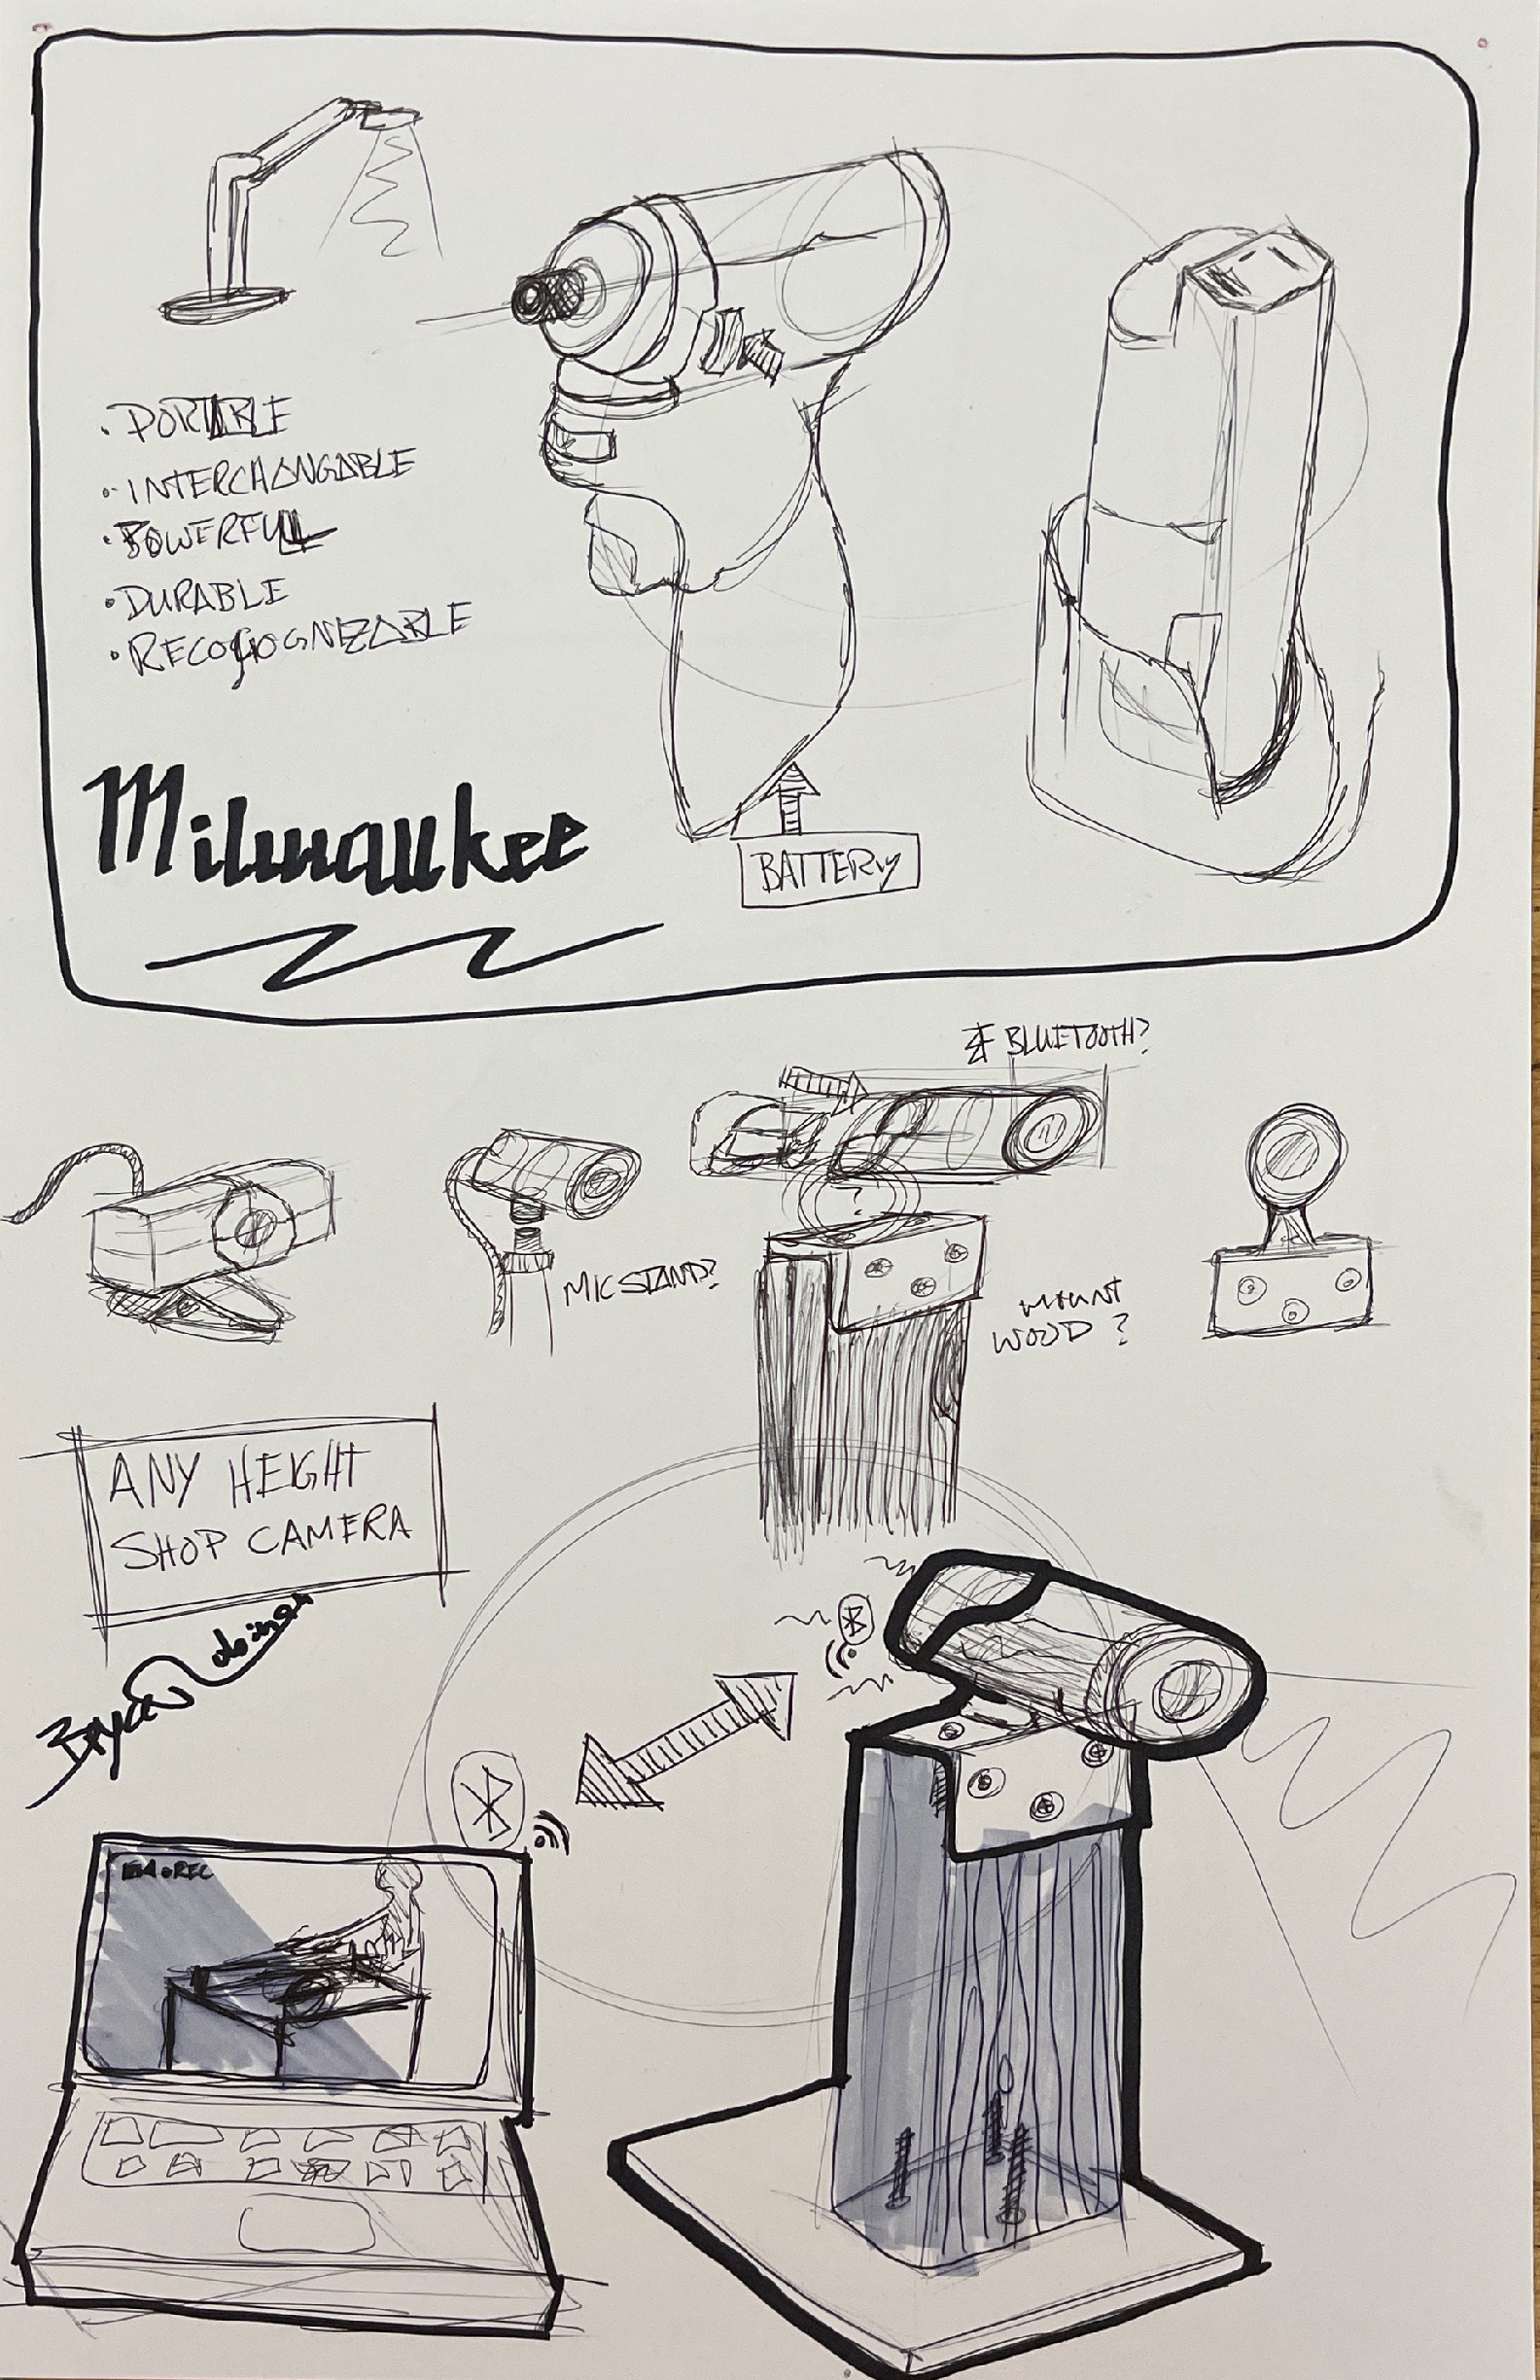 • PORTABLE
• INTERCHANGABLE
• POWERFULL
• DURABLE
Milwaukee
BATTERY
BLUETOOTH?
MIC STAND?
MOUNT
WOOD ?
ANY HEIGHT
SHOP CAMERA
REC